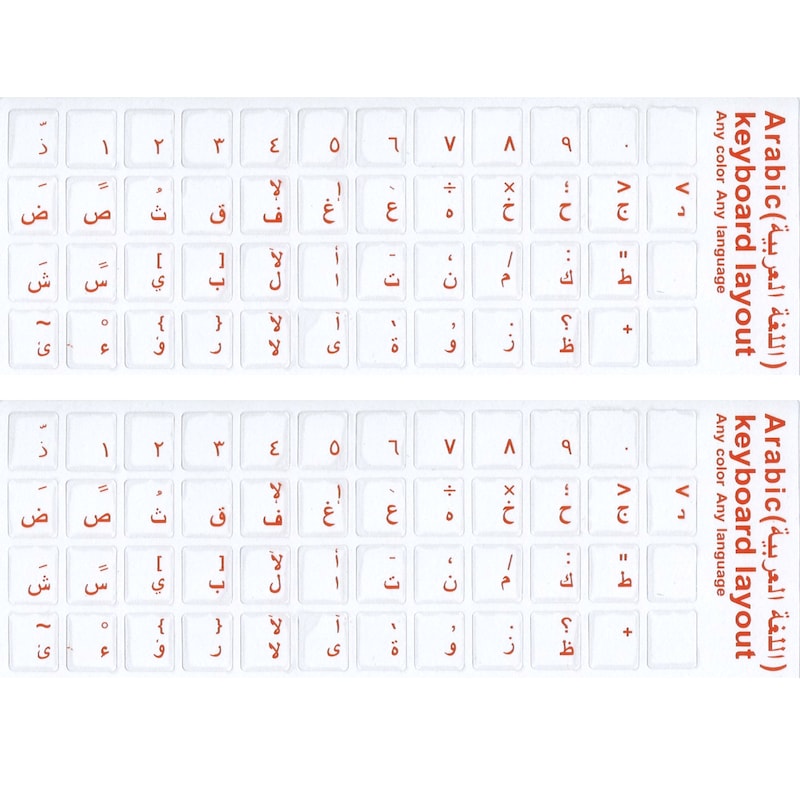 ذ ١ ٢ ٣ ٤ ٥ ٦ ٧ ٨ ٩ ٠
÷ ×
ض ص ث ق ف غ ع ه خ ح ج د
] [
ش س ي ب ل ا ت ن م ك ط
ئ ء ؤ ر لا ى ة و ز ظ +
Arabic(اللغة العربية)
keyboard layout
Any color Any language
ذ ١ ٢ ٣ ٤ ٥ ٦ ٧ ٨ ٩ ٠
÷ ×
ض ص ث ق ف غ ع ه خ ح ج د
] [
ش س ي ب ل ا ت ن م ك ط
ئ ء ؤ ر لا ى ة و ز ظ +
Arabic(اللغة العربية)
keyboard layout
Any color Any language